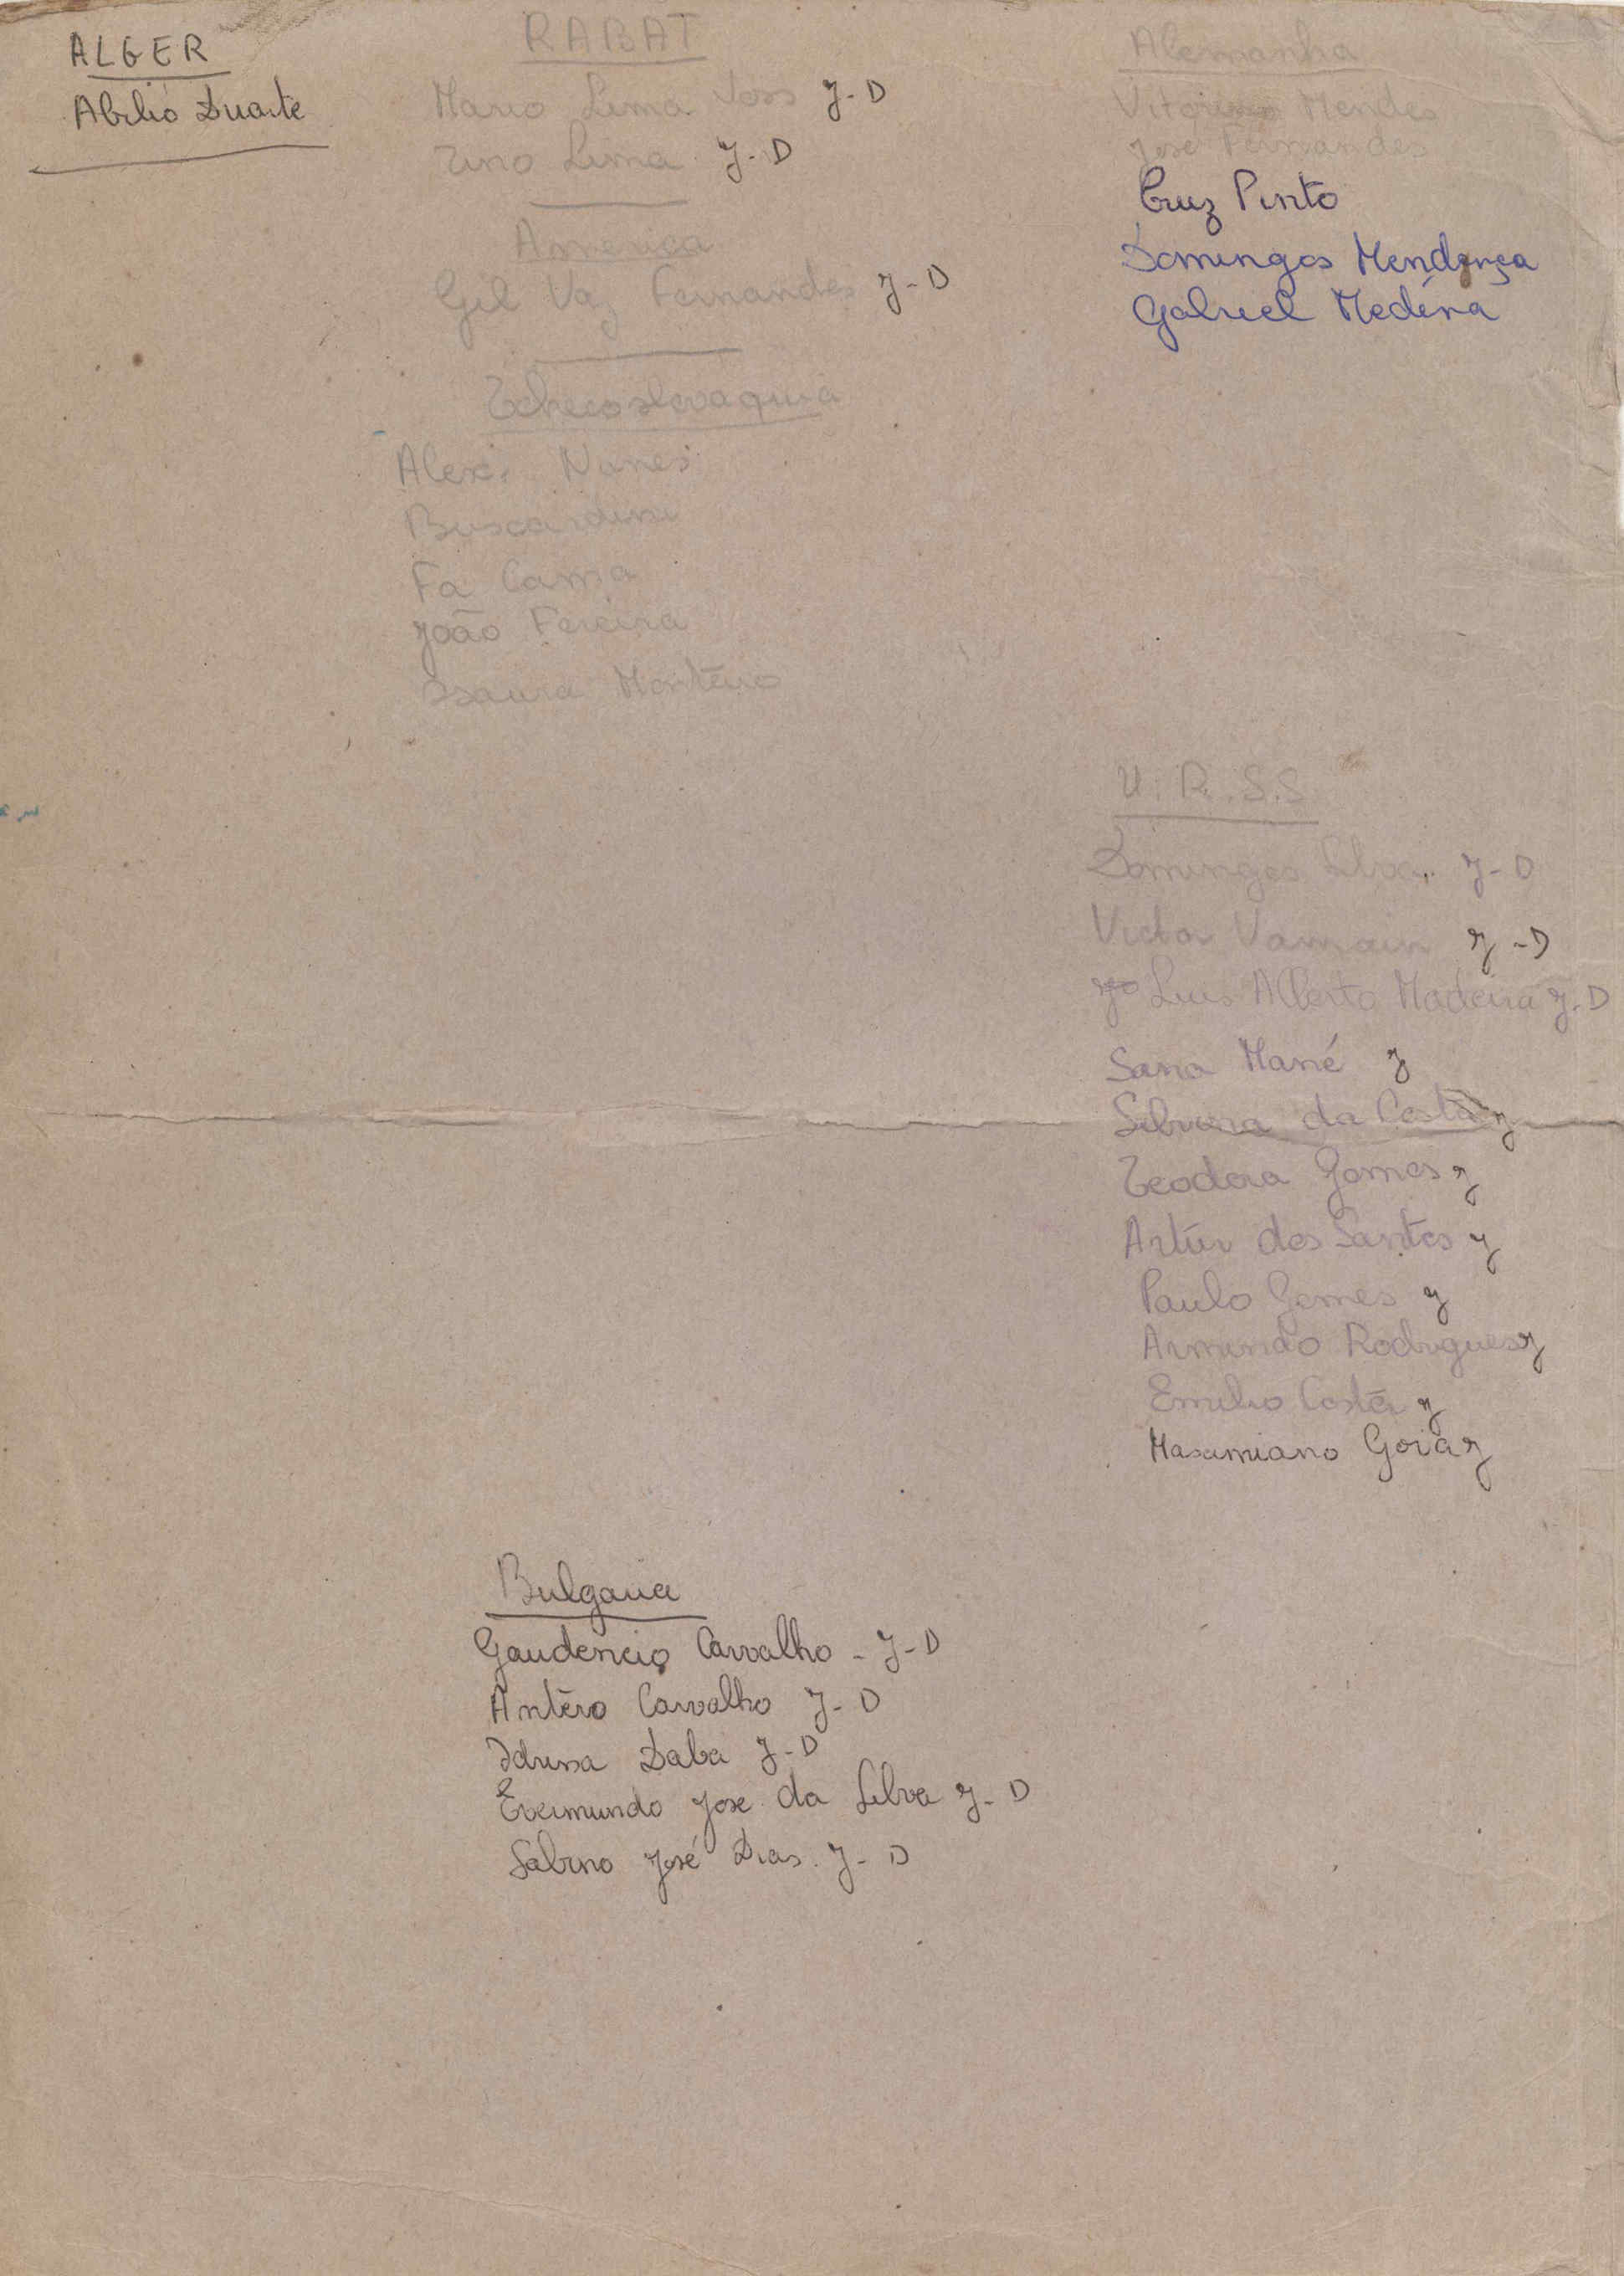 ALGER
Abilio Duarte
RABAT
Mario Lima Voss J-D
Tino Lima J-D
America
Gil Vaz Fernandes J-D
Tchecoslovaquia
Alex. Nunes
Buscardini
Fa Cama
João Fereira
Isaura Monteiro
Alemanha
Vitorino Mendes
José Fernandes
Cruz Pinto
Domingos Mendonça
Gabriel Medina
U.R.S.S
Domingos Silva J-D
Victor J-D
Luis Alberto Madeira J-D
Sana Mané J
Silvina da Costa J
Teodora Gomes J
Artur dos Santos J
Paulo Gomes J
Armindo Rodrigues J
Emilio Costa J
Goia J
Bulgaria
Gaudencio Carvalho - J-D
Antéro Carvalho J-D
Idrissa Daba J-D
José da Silva J-D
Sabino José Dias. J-D